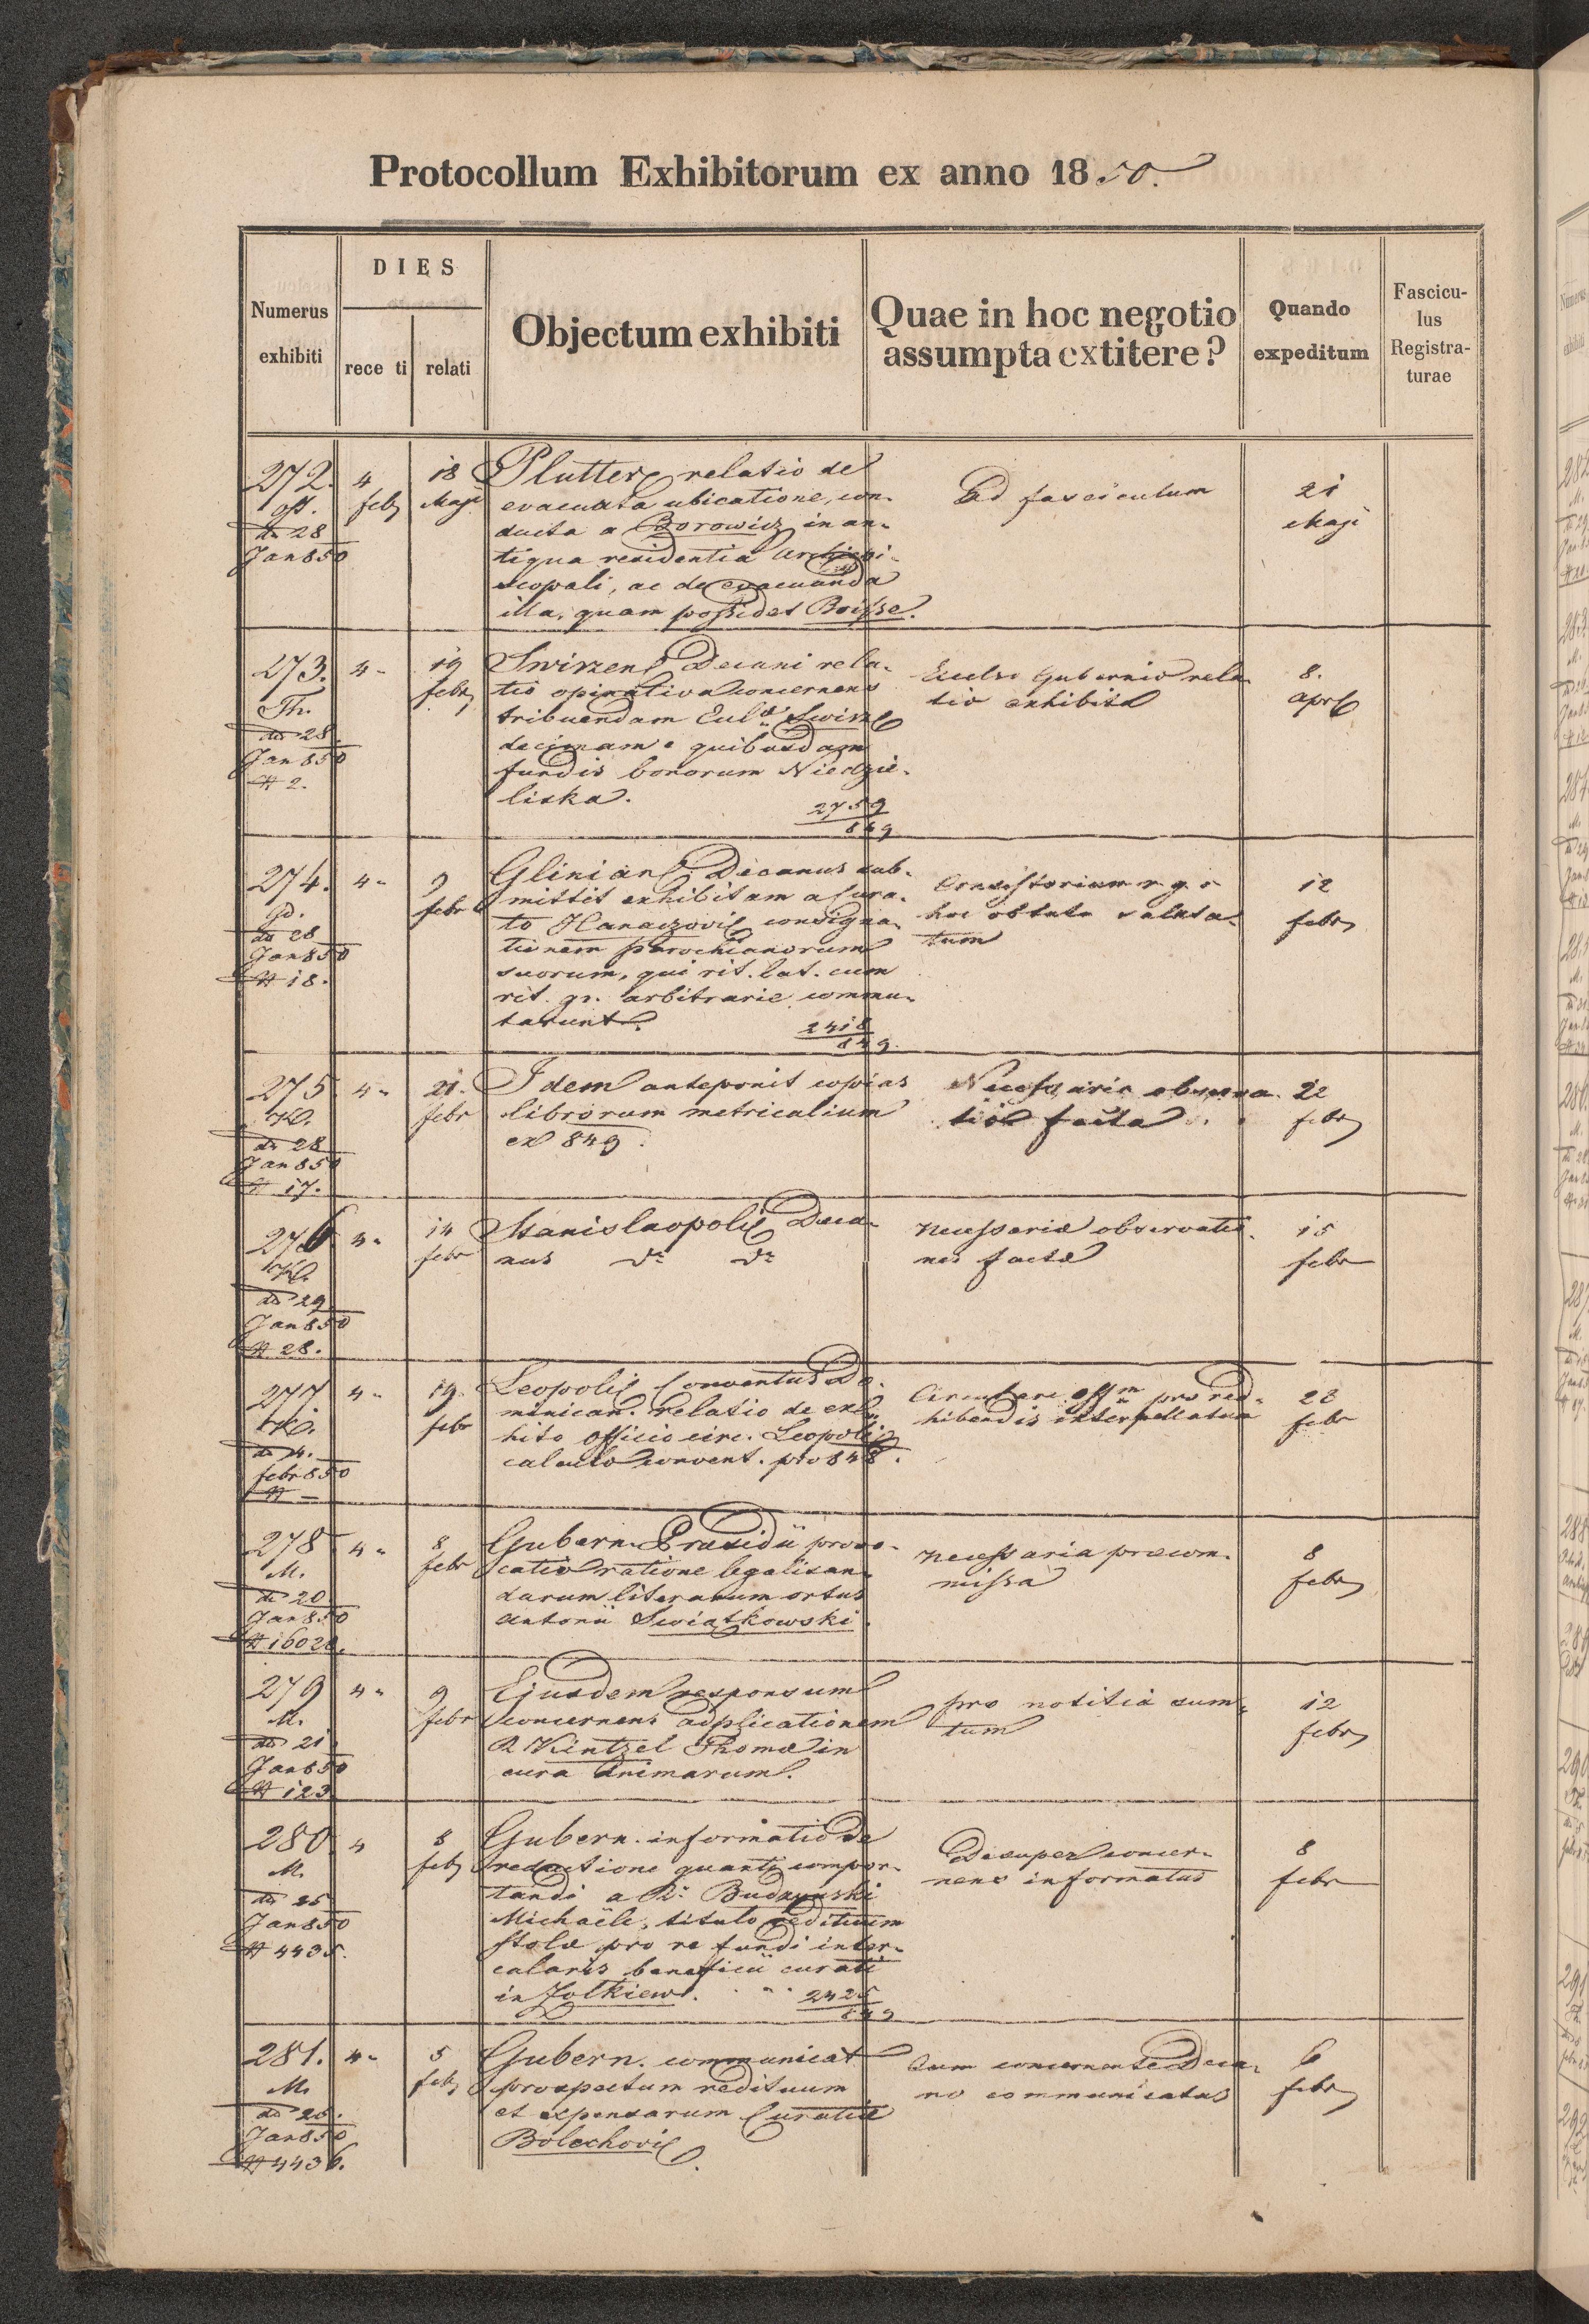 Protocollum Exhibitorum ex anno 1850.
Numerus exhibiti
DIES
rece ti
relati
Objectum exhibiti
Quae in hoc negotio assumpta extitere?
Quando expeditum
Fascicu-
lus
Registra-
turae
272.
off.
do 28
Jan 850
4
feb
18
Maji
Plutter relatio de
evacuata ubicatione, con-
ducta a Borowicz in an-
tiqua residentia Archiepi-
scopali, ac de evacuanda
illa, quam possidet Boisse.
Ad fasciculum
21
Maji
273.
Th.
do 28.
Jan 850
N 2.
4-
19
febr
Swirzens Decani rela-
tio opinativa concernens
tribuendam Eccl. Swirz
decimam e quibusdam
fundis bonorum Niedzie-
liska.
2759
849
Excelso Gubernio rela-
tio exhibita
8.
Apr
274.
do 28
Jan 850
N 18.
4-
9
febr
Glinian. Decanus sub-
mittit exhibitam a Cura-
to Hanaczovi consigna-
tionem parochianorum
suorum, qui rit. lat. cum
rit. gr. arbitrarie commu-
tarunt.
2418
849.
Consistorium r. g. r
hoc obtutu
tum
12
febr
275
do 28
Jan 850
N 17.
4-
21.
febr
Idem anteponit copias
librorum metricalium
ex 849.
Necessaria observa-
tio facta
22
febr
276
do 29
Jan 850
N 28.
4-
14
febr
Stanislaopoli Deca-
nus do do
necessariae observatio-
nes factae
15
febr
277
do 4.
febr 850
N —
4-
19.
febr
Leopoli Conventus Do-
minican. relatio de exhi-
bito officio circ. Leopoli
calculo convent. pro 848.
Circulare offm pro red-
hibendis interpellatum
28
febr
278
M.
do 20
Jan 850
N 16028.
4-
8
febr
Gubern. Praesidii provo-
catio ratione legalisan-
darum literarum ortus
Antonii Swiątkowski.
necessaria praecom-
missa
8
febr
279
M.
do 21
Jan 850
N 123
4-
9
febr
Ejusdem responsum
concernens adplicationem
R Kintzel Thomae in
cura animarum.
pro notitia sum-
tum
12
febr
280
M.
do 25
Jan 850
N 4435.
4
8
feb
Gubern. informatio de
reductione quanti compor-
tandi a R. Budzynski
Michaële, titulo redituum
stolae pro re fundi inter-
calaris beneficii curati
in Zolkiew.
2425
849
Desuper concer-
nens informatus
8
febr
281.
M.
do 25.
Jan 850
N 4436.
4-
5
feb
Gubern. communicat
prospectum redituum
et expensarum Curatiae
Bolechovi.
Cum concernente Deca-
no communicatus
6
febr